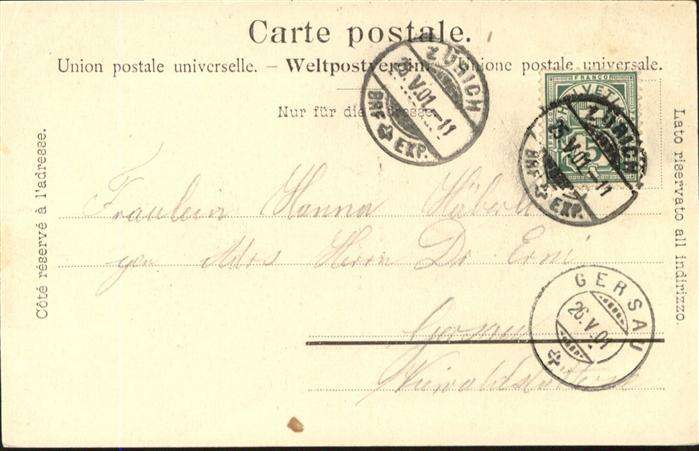 Carte postale.
Union postale universelle. – Weltpostverein. – Unione postale universale.
Nur für die Adresse.
Côté réservé à l'adresse.
Lato riservato all indirizzo.
ZÜRICH
25.V.01.–11
BRF. EXP.
FRANCO
HELVETIA
5
ZÜRICH
25.V.01.–11
BRF. EXP.
Fräulein Hanna
Adrs Herrn Dr. Erni
GERSAU
26.V.01